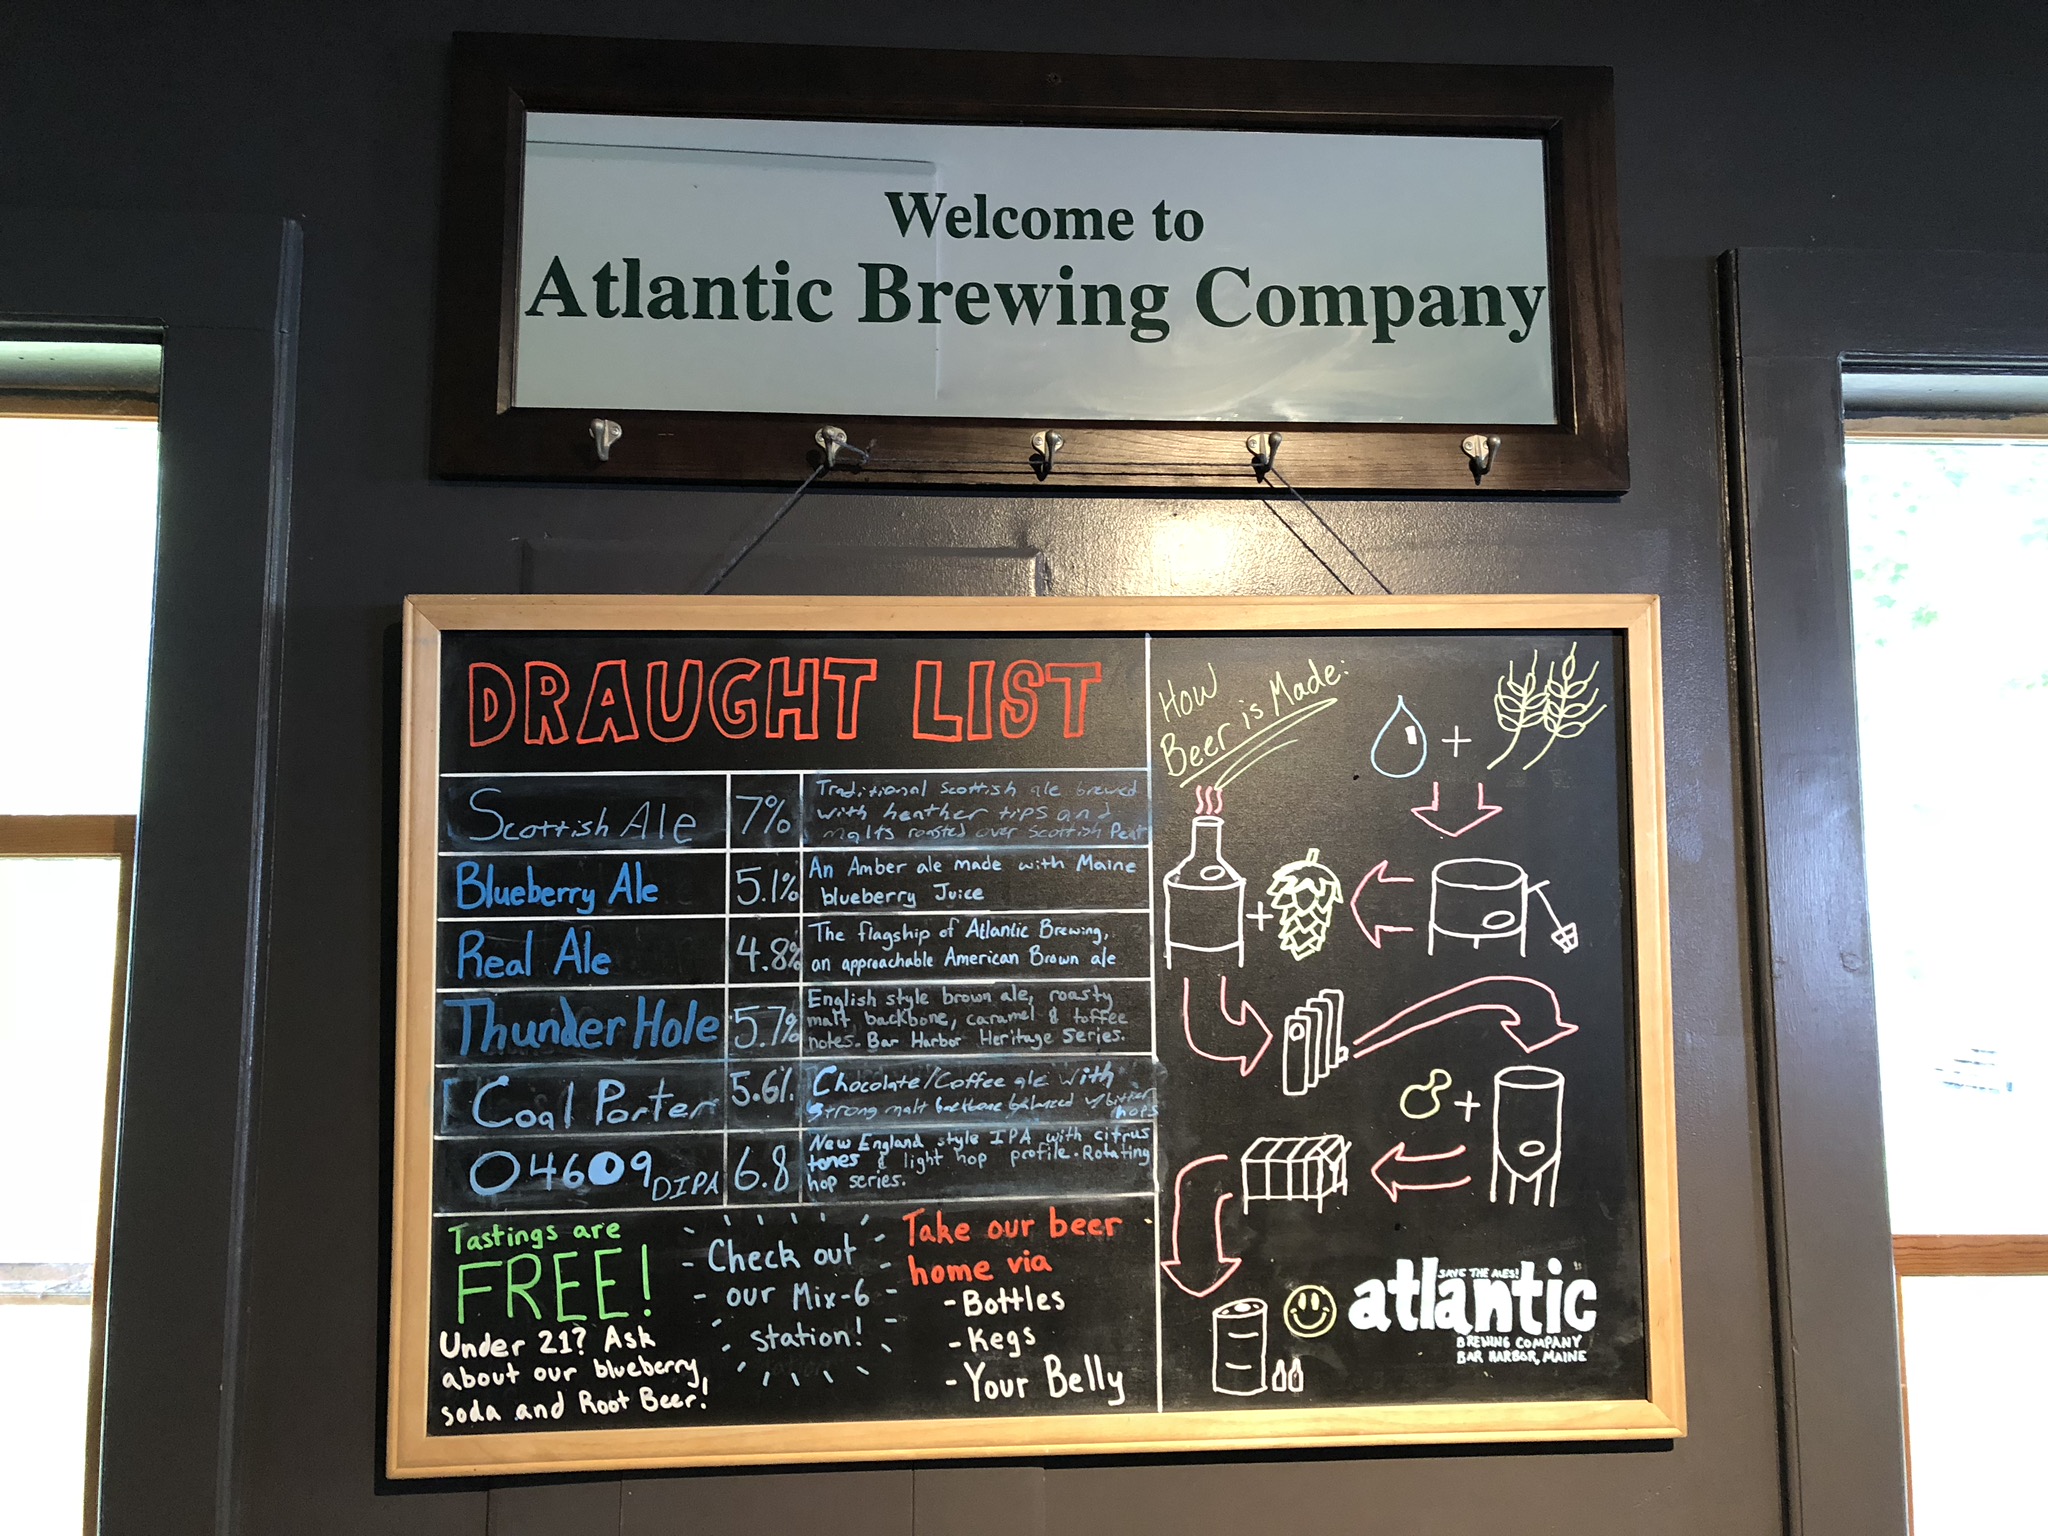 Welcome to
Atlantic Brewing Company
DRAUGHT LIST
Scottish Ale
7%
Traditional Scottish ale brewed
with heather tips and
malts roasted over Scottish Peat
Blueberry Ale
5.1%
An Amber ale made with Maine
blueberry Juice
Real Ale
4.8%
The flagship of Atlantic Brewing,
an approachable American Brown ale
Thunder Hole
5.7%
English style brown ale, roasty
malt backbone, caramel & toffee
notes. Bar Harbor Heritage Series.
Coal Porter
5.6%
Chocolate/Coffee ale with
strong malt backbone balanced w/bitter
hops
04609 DIPA
6.8
New England style IPA with citrus
tones & light hop profile. Rotating
hop series.
Tastings are
FREE!
Under 21? Ask
about our blueberry
soda and Root Beer!
Check out
our Mix-6
station!
Take our beer
home via
- Bottles
- Kegs
- Your Belly
How
Beer is Made:
+
+
+
SAVE THE ALES!
atlantic
BREWING COMPANY
BAR HARBOR, MAINE